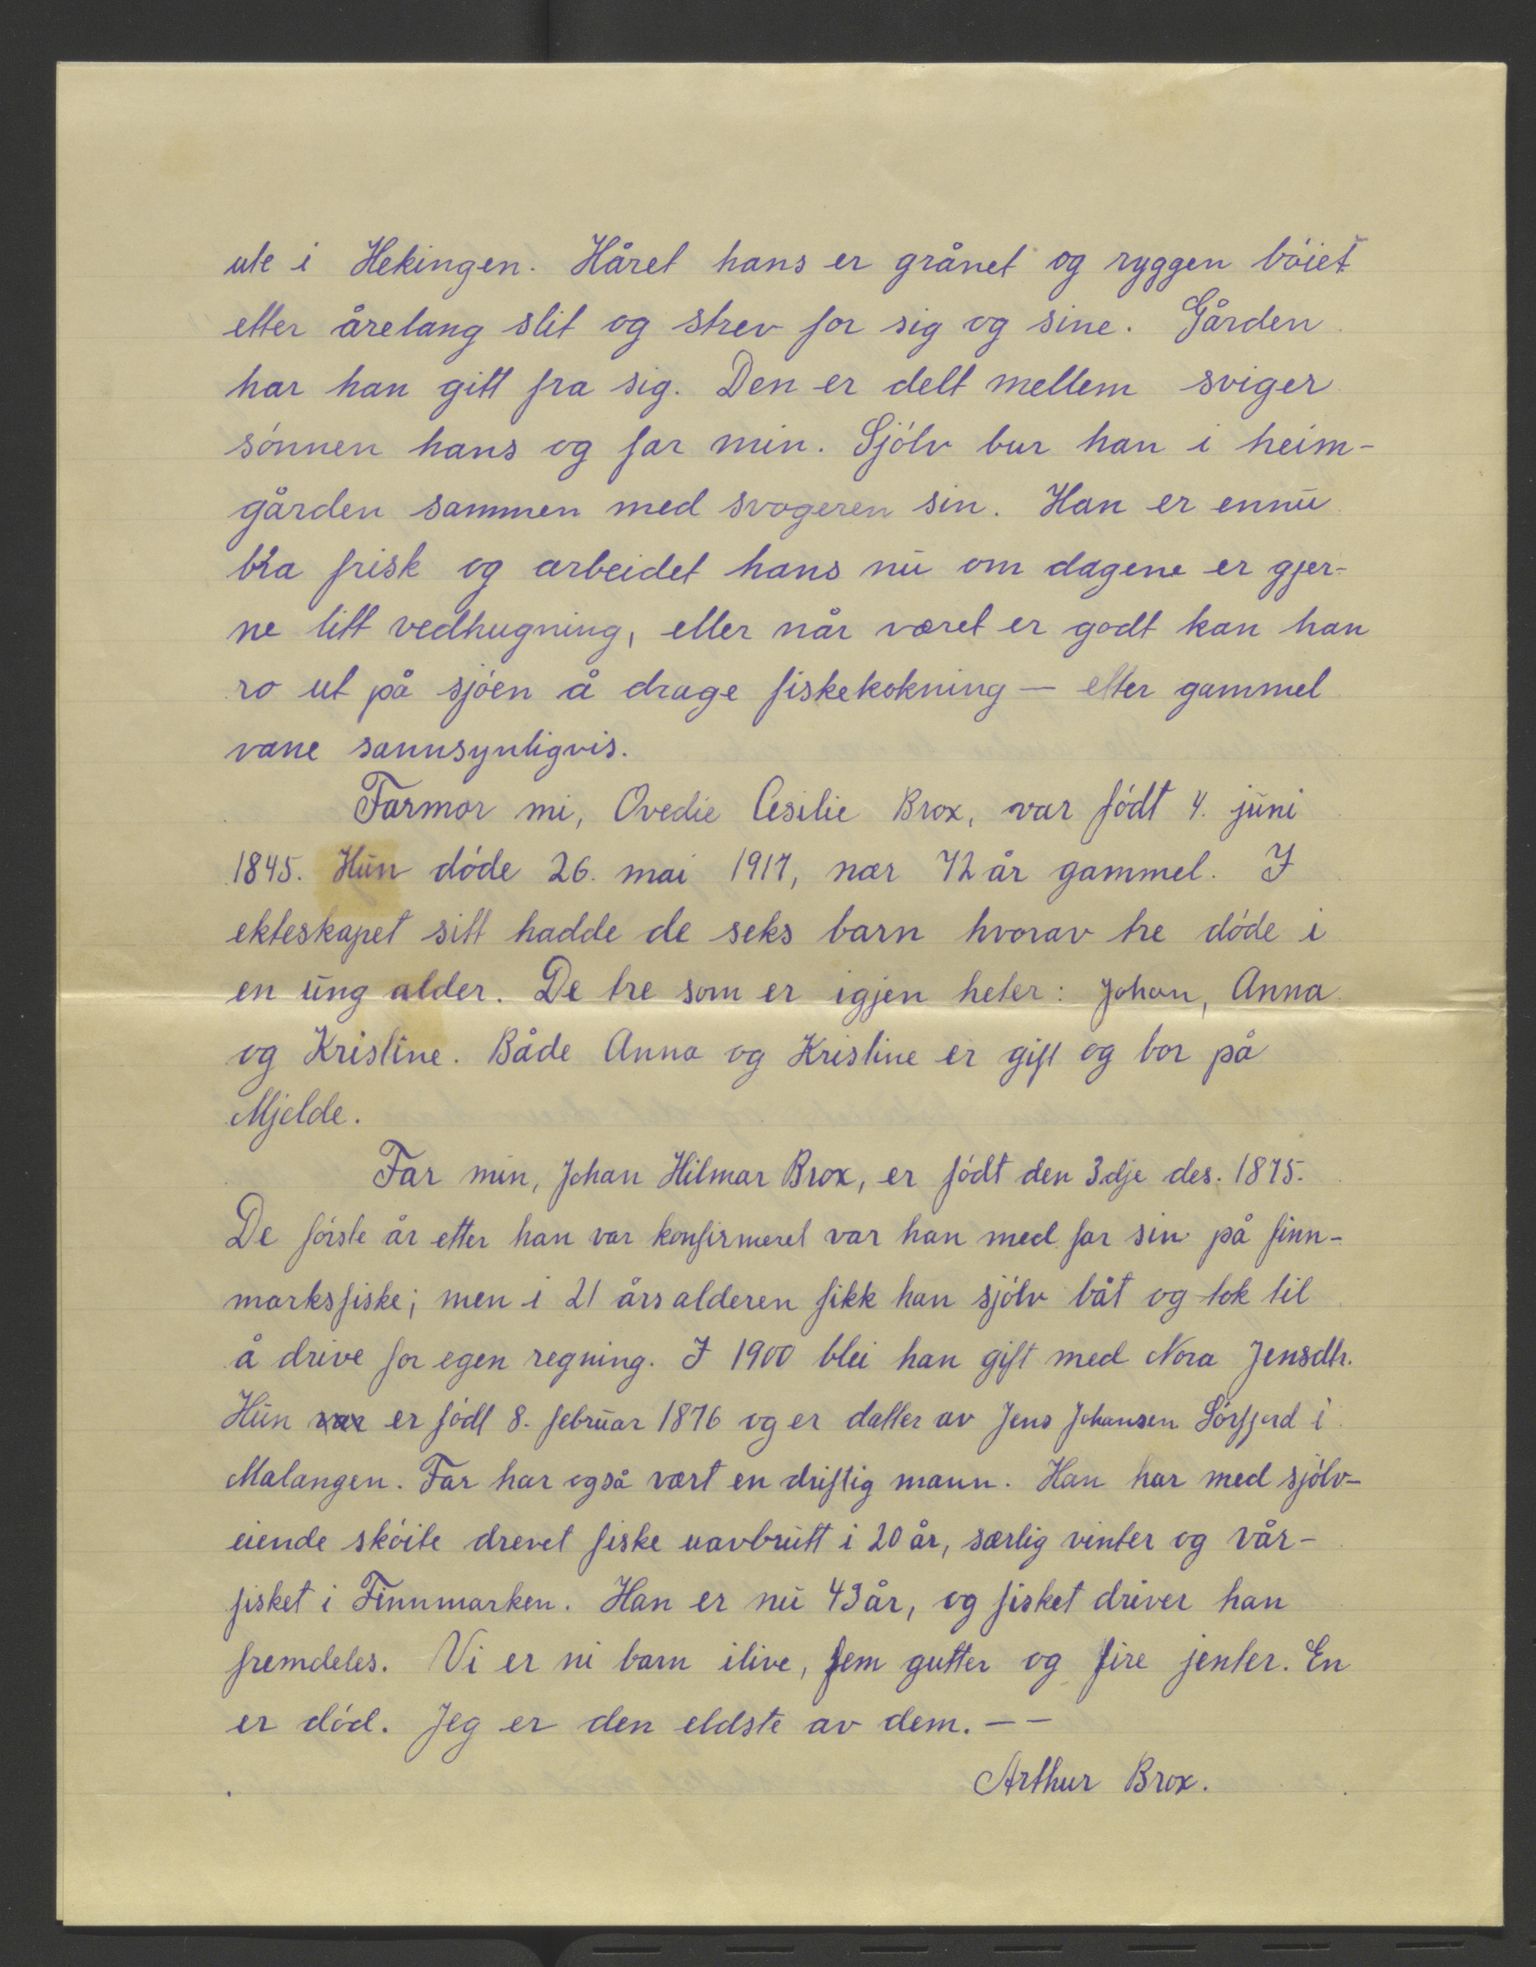 ute i Hekingen. Håret hans er grånet og ryggen bóiet
etter årelang slit og strev for sig og sine. Gården
har han gitt fra sig. Den er delt mellem sviger
sónnen hans og far min. Sjólv bur han i heim-
gården sammen med svogeren sin. Han er ennu
bra frisk og arbeidet hans nu om dagene er gjer-
ne litt vedhugning, eller når været er godt kan han
ro ut på sjóen å drage fiskekokning — etter gammel
vane sannsynligvis.
Farmor mi, Ovedie Cesilie Brox, var fódt 4. juni
1845. Hun dóde 26. mai 1917, nær 72 år gammel. I
ekteskapet sitt hadde de seks barn hvorav tre dóde i
en ung alder. De tre som er igjen heter: Johan, Anna
og Kristine. Både Anna og Kristine er gift og bor på
Mjelde.
Far min, Johan Hilmar Brox, er fódt den 3dje des. 1875.
De fórste år etter han var konfirmeret var han med far sin på finn-
marksfiske; men i 21 årsalderen fikk han sjólv båt og tok til
å drive for egen regning. I 1900 blei han gift med Nora Jensdtr.
Hun var er fódt 8. februar 1876 og er datter av Jens Johansen Sórfjord i
Malangen. Far har også vært en driftig mann. Han har med sjólv-
eiende skóite drevet fiske uavbrutt i 20 år, særlig vinter og vår-
fisket i Finnmarken. Han er nu 43 år, og fisket driver han
fremdeles. Vi er ni barn ilive, fem gutter og fire jenter. En
er dód. Jeg er den eldste av dem. — —
Arthur Brox.